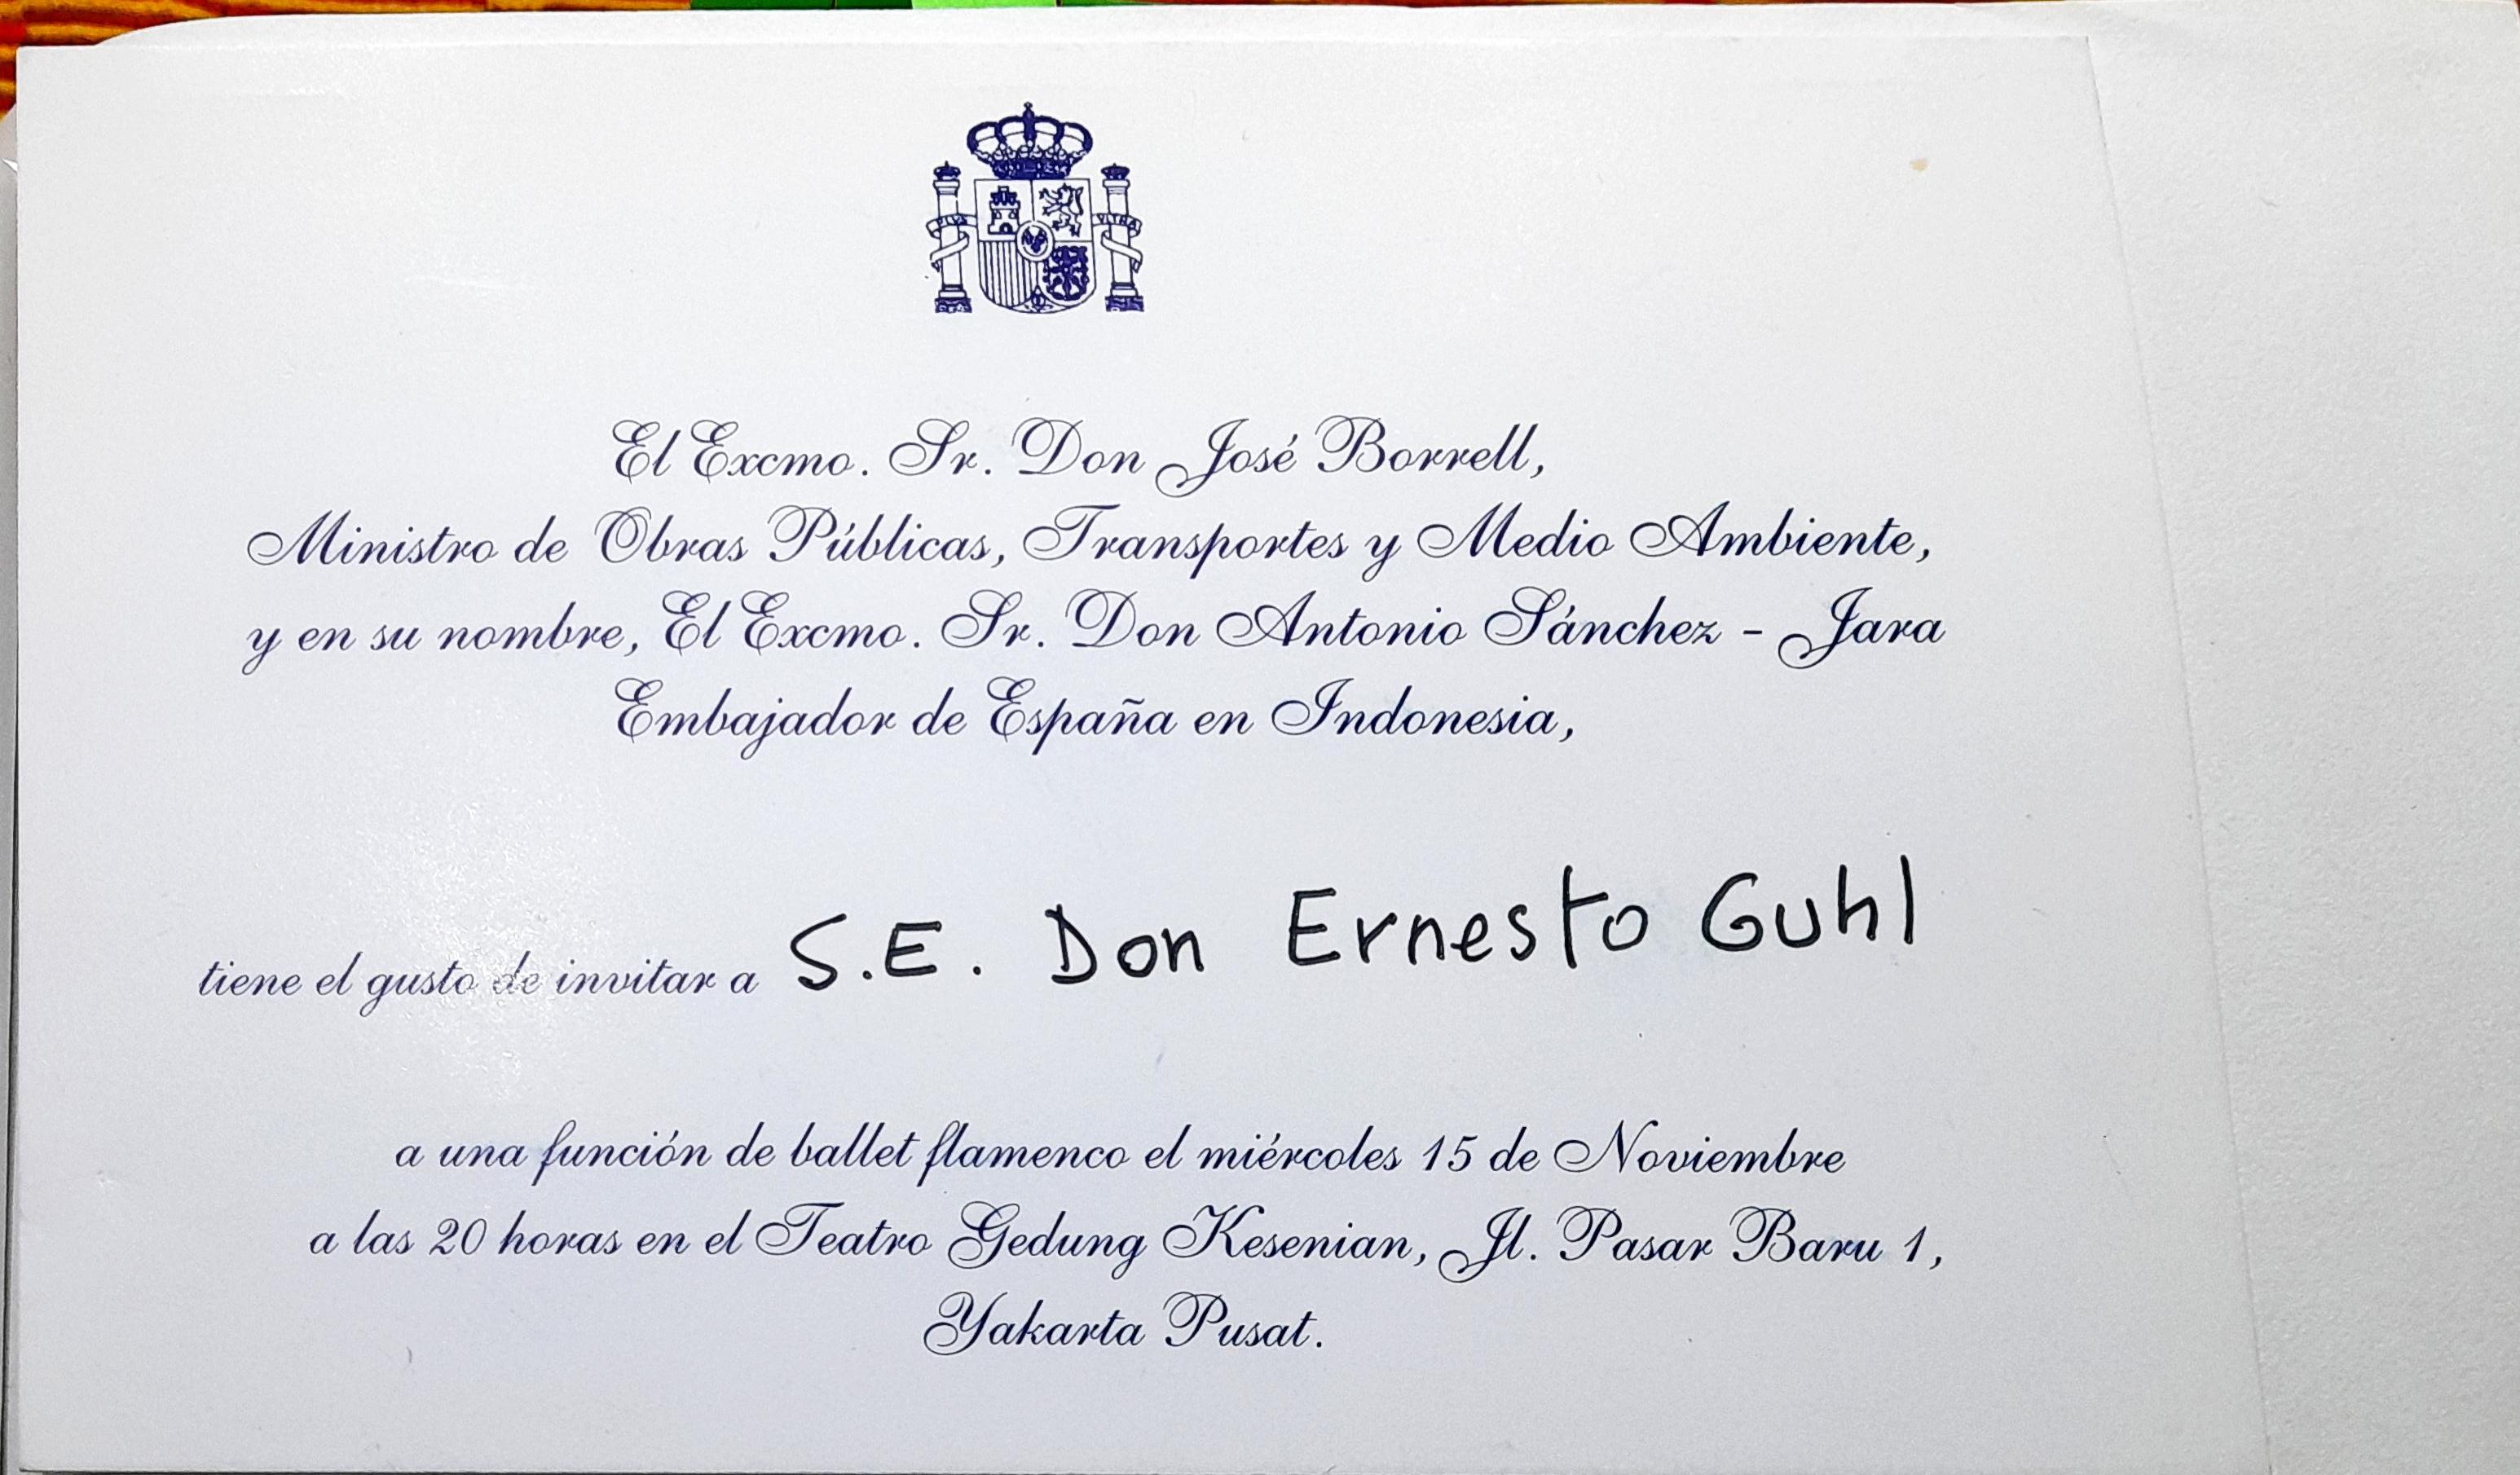 PLVS VLTRA
El Excmo. Sr. Don José Borrell,
Ministro de Obras Públicas, Transportes y Medio Ambiente,
y en su nombre, El Excmo. Sr. Don Antonio Sánchez - Jara
Embajador de España en Indonesia,
tiene el gusto de invitar a S.E. Don Ernesto Guhl
a una función de ballet flamenco el miércoles 15 de Noviembre
a las 20 horas en el Teatro Gedung Kesenian, Jl. Pasar Baru 1,
Yakarta Pusat.